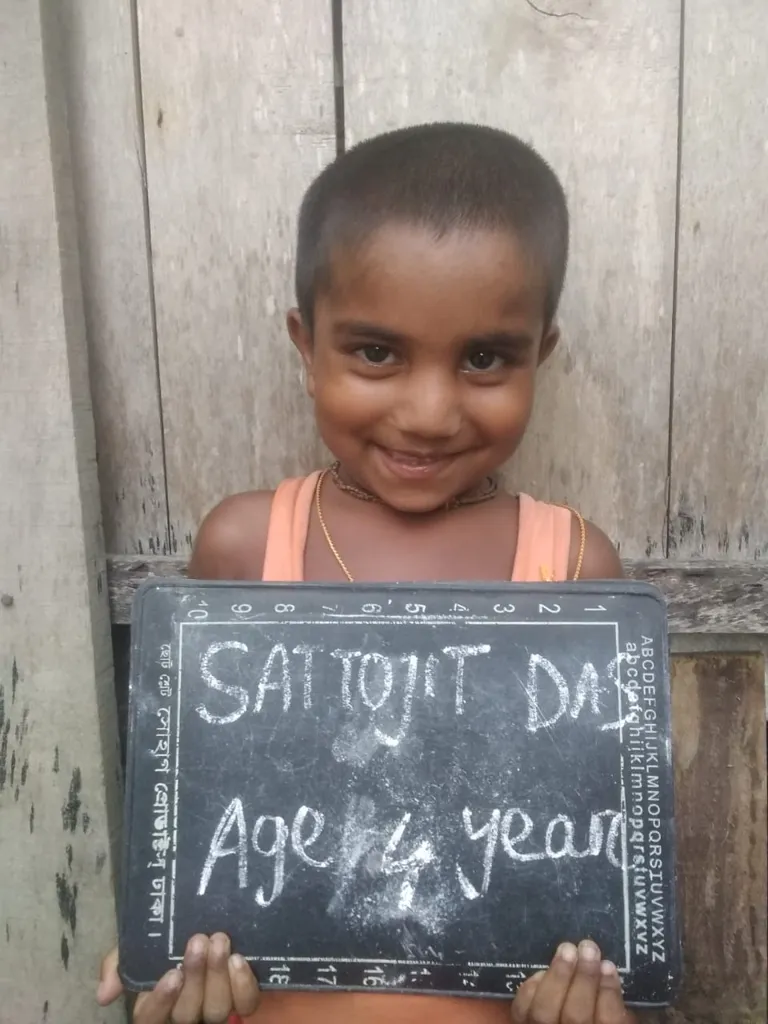 1 2 3 4 5 6 7 8 9 10
SATTOJIT DAS
Age 4 year
ABCDEFGHIJKLMNOPQRSTUVWXYZ
abcdefghijklmnopqrstuvwxyz
18 17 16